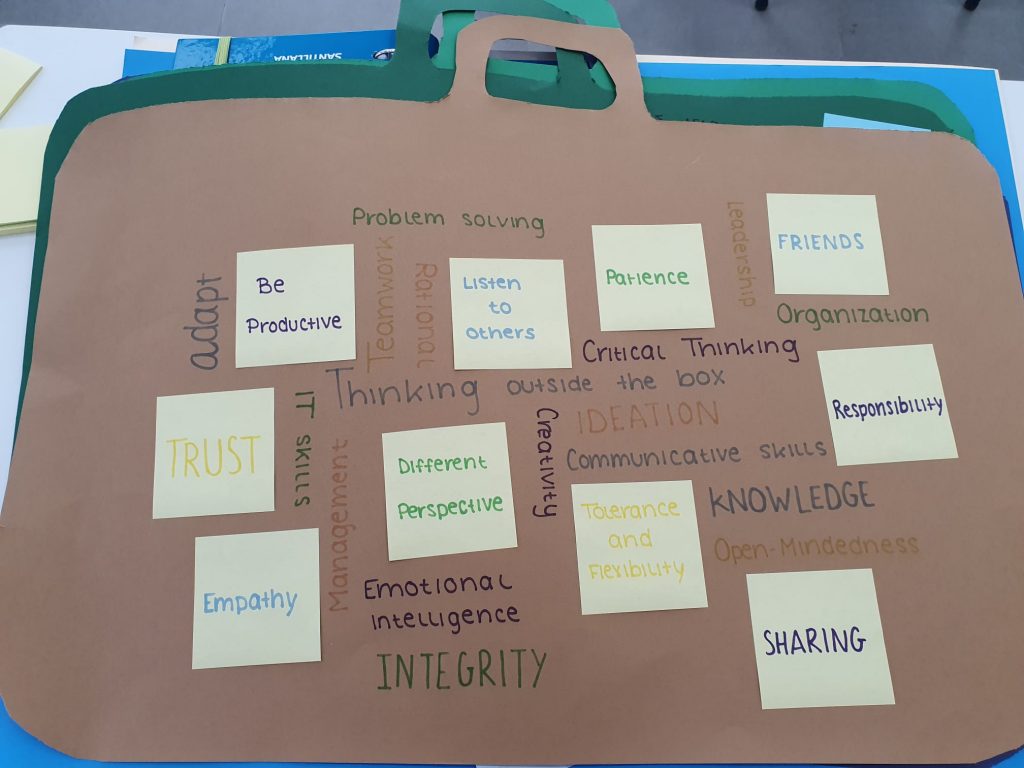 SANTILLANA
Problem solving
Leadership
FRIENDS
adapt
Be
Productive
Teamwork
Rational
Listen
to
others
Patience
Organization
Critical Thinking
Thinking outside the box
Responsibility
TRUST
IT SKILLS
Management
Different
Perspective
Creativity
IDEATION
Communicative skills
Tolerance
and
Flexibility
KNOWLEDGE
Open-Mindedness
Empathy
Emotional
Intelligence
INTEGRITY
SHARING